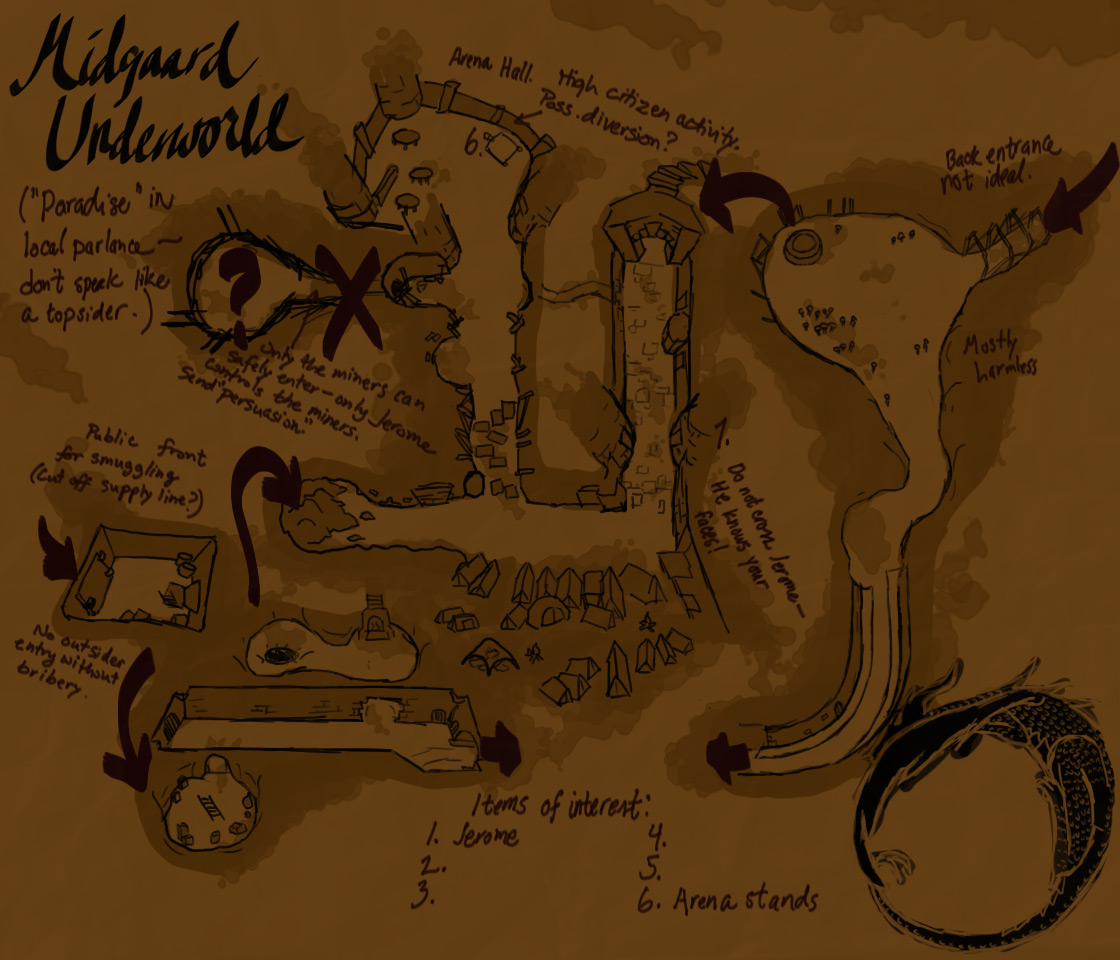 Midgaard
Underworld
("Paradise" in
local parlance —
don't speak like
a topsider.)
Arena Hall. High citizen activity.
Poss. diversion?
6.
Back entrance
not ideal.
?
X
Only the miners can
safely enter — only Jerome
controls the miners.
Send "persuasion."
Mostly
harmless
Public front
for smuggling
(Cut off supply line?)
1.
Do not cross Jerome —
He knows your
faces!
No outsider
entry without
bribery.
Items of interest:
1. Jerome
2.
3.
4.
5.
6. Arena stands